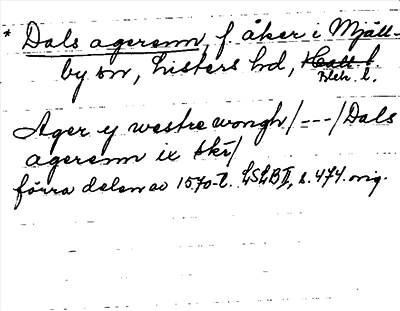 * Dals agerenn, f. åker i Mjäll-
by sn, Listers hd, Hall. l.
Blek. l.
Ager y westre wongh /---/ Dals
agerenn ix skr/
förra delen av 1570-t. LSLB II, s. 474. orig.